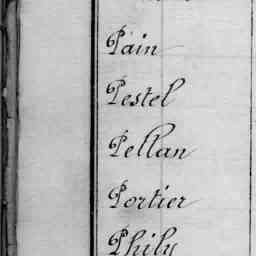 Pain
Pestel
Pellan
Portier
Phily